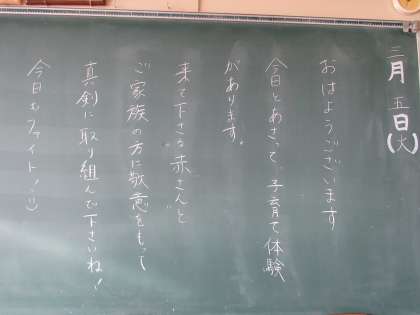 三月五日(火)
おはようございます
今日とあさって、子育て体験
があります。
来て下さる赤さんと
ご家族の方に敬意をもって
真剣に取り組んで下さいね!
今日もファイト!!